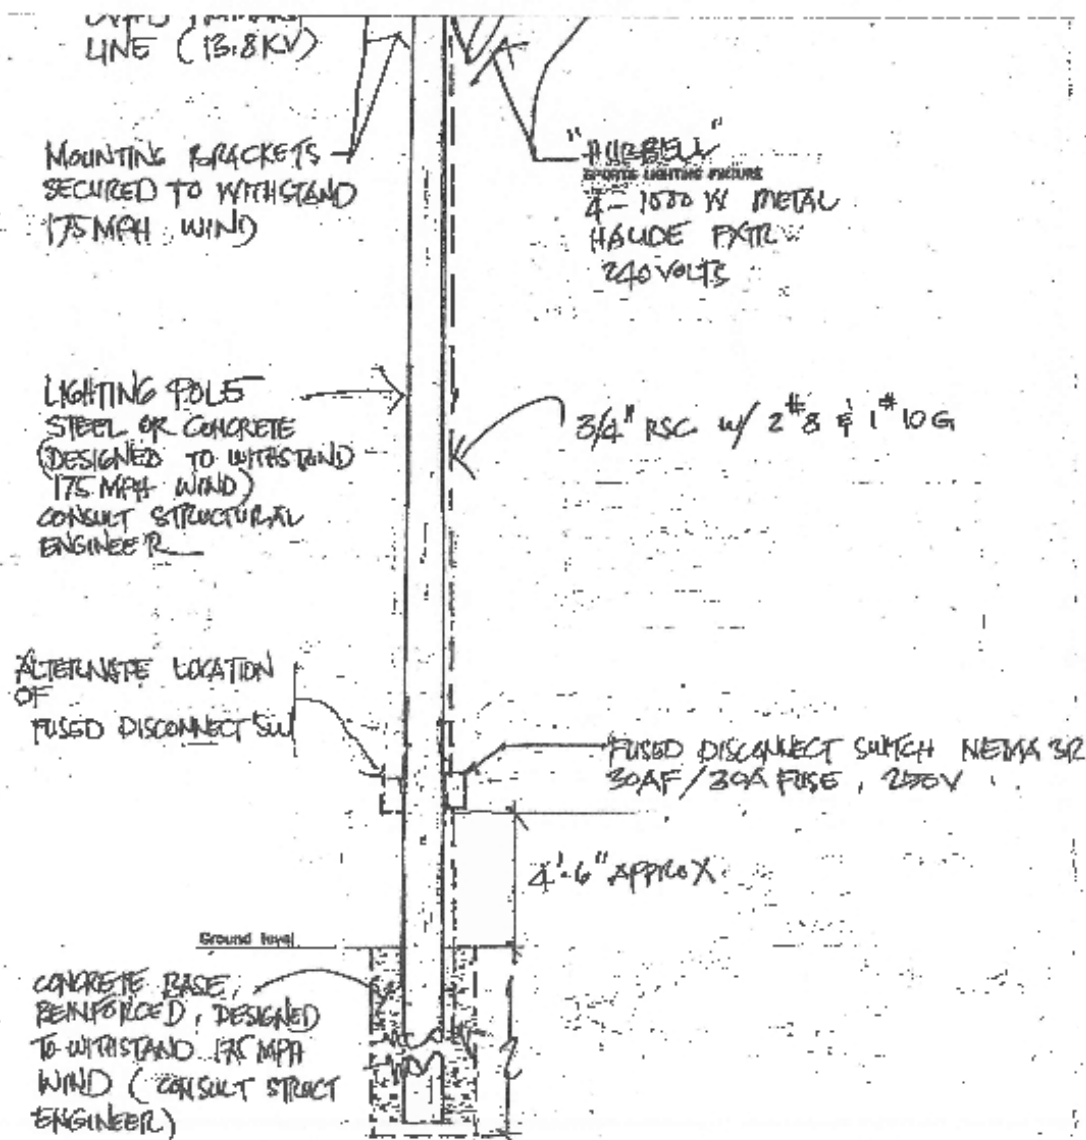 LINE (13.8KV)
MOUNTING BRACKETS
SECURED TO WITHSTAND
175 MPH WIND)
"HUBBELL"
SPORTS LIGHTING FIXTURE
4 - 1500 W METAL
HALIDE FXTR
240 VOLTS
LIGHTING POLE
STEEL OR CONCRETE
(DESIGNED TO WITHSTAND
175 MPH WIND)
CONSULT STRUCTURAL
ENGINEER
3/4" RSC w/ 2 #8 & 1 #10 G
ALTERNATE LOCATION
OF
FUSED DISCONNECT SW
FUSED DISCONNECT SWITCH NEMA 3R
30AF/30A FUSE, 250V
4'-6" APPROX
Ground level
CONCRETE BASE,
REINFORCED, DESIGNED
TO WITHSTAND 175 MPH
WIND (CONSULT STRUCT
ENGINEER)